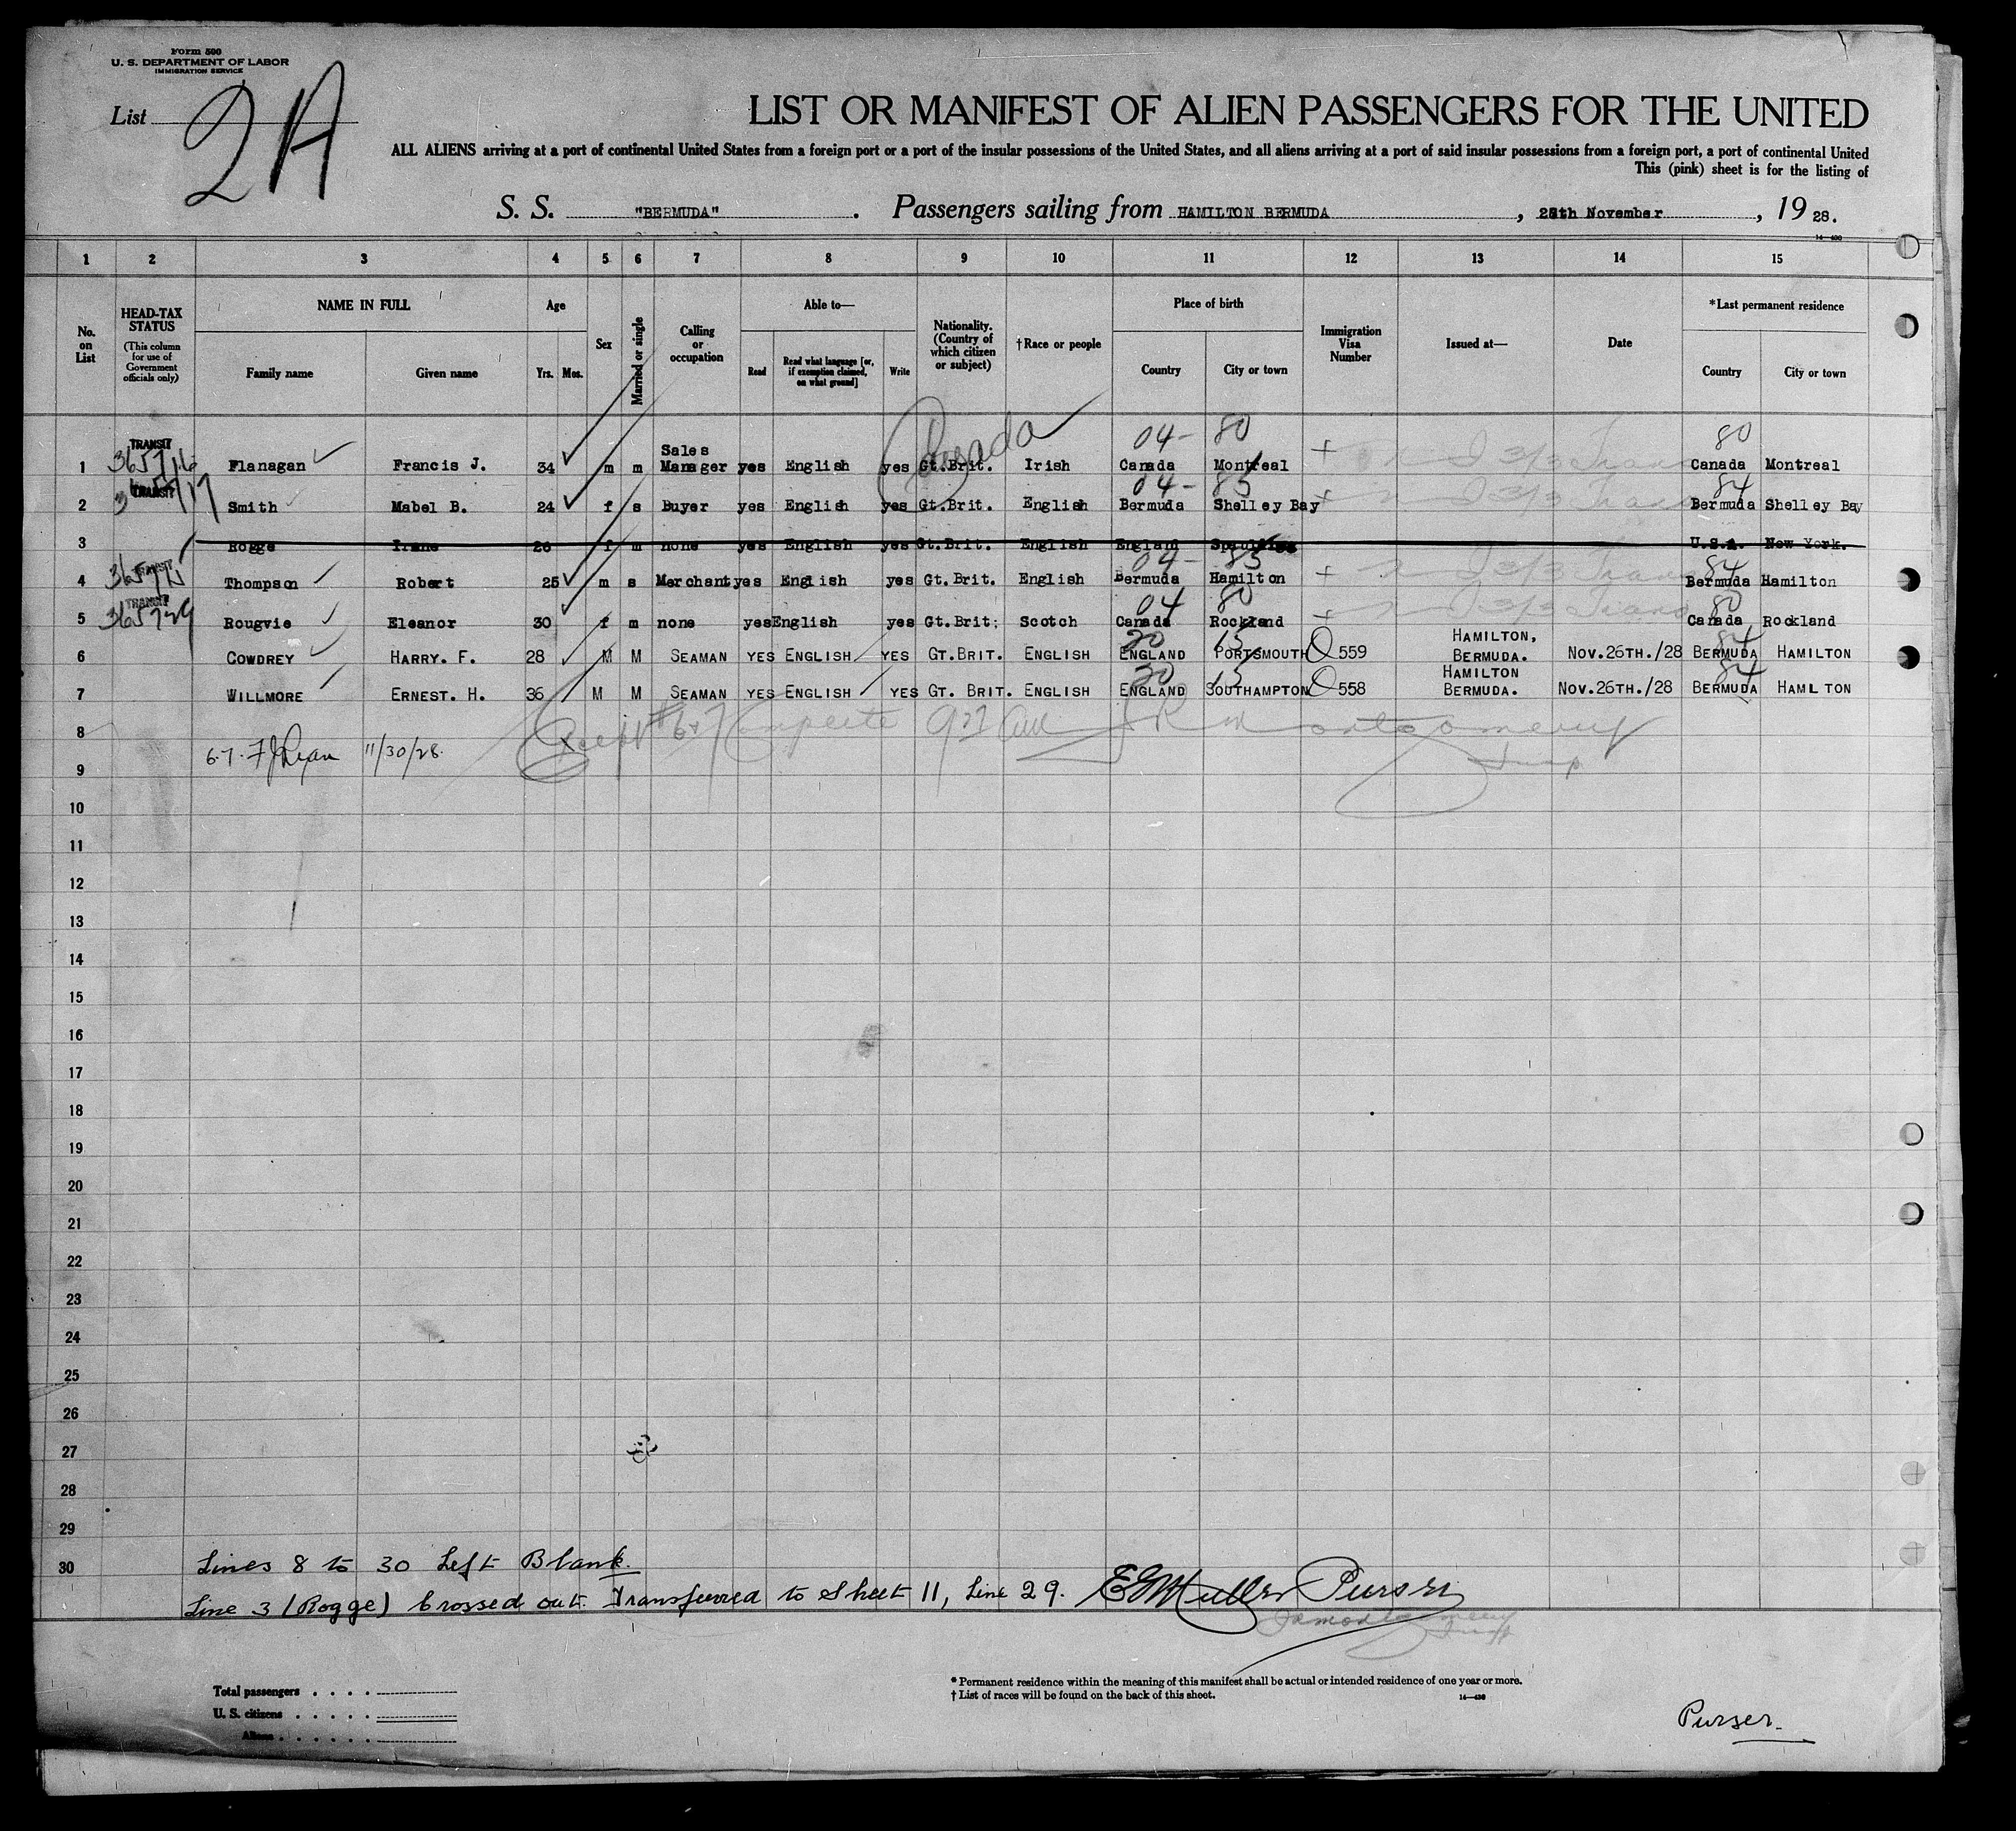 Form 500
U. S. DEPARTMENT OF LABOR
IMMIGRATION SERVICE
List 2A
LIST OR MANIFEST OF ALIEN PASSENGERS FOR THE UNITED
ALL ALIENS arriving at a port of continental United States from a foreign port or a port of the insular possessions of the United States, and all aliens arriving at a port of said insular possessions from a foreign port, a port of continental United
This (pink) sheet is for the listing of
S. S. "BERMUDA". Passengers sailing from HAMILTON BERMUDA, November, 19 28.
1 2 3 4 5 6 7 8 9 10 11 12 13 14 15
No. on List
HEAD-TAX STATUS (This column for use of Government officials only)
NAME IN FULL Family name Given name
Age Yrs. Mos.
Sex
Married or single
Calling or occupation
Able to— Read Read what language [or, if exemption claimed, on what ground] Write
Nationality. (Country of which citizen or subject)
†Race or people
Place of birth Country City or town
Immigration Visa Number
Issued at—
Date
*Last permanent residence Country City or town
Canada 04- 80 80
1 TRANSIT Flanagan Francis J. 34 m m Sales Manager yes English yes Gt.Brit. Irish Canada Montreal Canada Montreal
04- 85 84
2 TRANSIT Smith Mabel B. 24 f s Buyer yes English yes Gt.Brit. English Bermuda Shelley Bay Bermuda Shelley Bay
3 Rogge Irene 26 f m none yes English yes Gt.Brit. English England U.S.A. New York.
04- 85 84
4 TRANSIT Thompson Robert 25 m s Merchant yes English yes Gt. Brit. English Bermuda Hamilton Bermuda Hamilton
04 80 80
5 TRANSIT 365729 Rougvie Eleanor 30 f m none yes English yes Gt.Brit: Scotch Canada Rockland Canada Rockland
6 COWDREY HARRY. F. 28 M M SEAMAN YES ENGLISH YES GT.BRIT. ENGLISH ENGLAND PORTSMOUTH 559 HAMILTON, BERMUDA. NOV.26TH./28 BERMUDA HAMILTON
7 WILLMORE ERNEST. H. 36 M M SEAMAN YES ENGLISH YES GT. BRIT. ENGLISH ENGLAND SOUTHAMPTON 558 HAMILTON BERMUDA. NOV.26TH./28 BERMUDA HAMILTON
8 Except #6+7 Complete Montgomery
6-7. F J Ryan 11/30/28. Insp
9
10
11
12
13
14
15
16
17
18
19
20
21
22
23
24
25
26
27
28
29
30 Lines 8 to 30 Left Blank.
Line 3 (Rogge) Crossed out. Transferred to Sheet 11, Line 29. Purser
Total passengers
U. S. citizens
Aliens
* Permanent residence within the meaning of this manifest shall be actual or intended residence of one year or more.
† List of races will be found on the back of this sheet.
14—430
Purser.